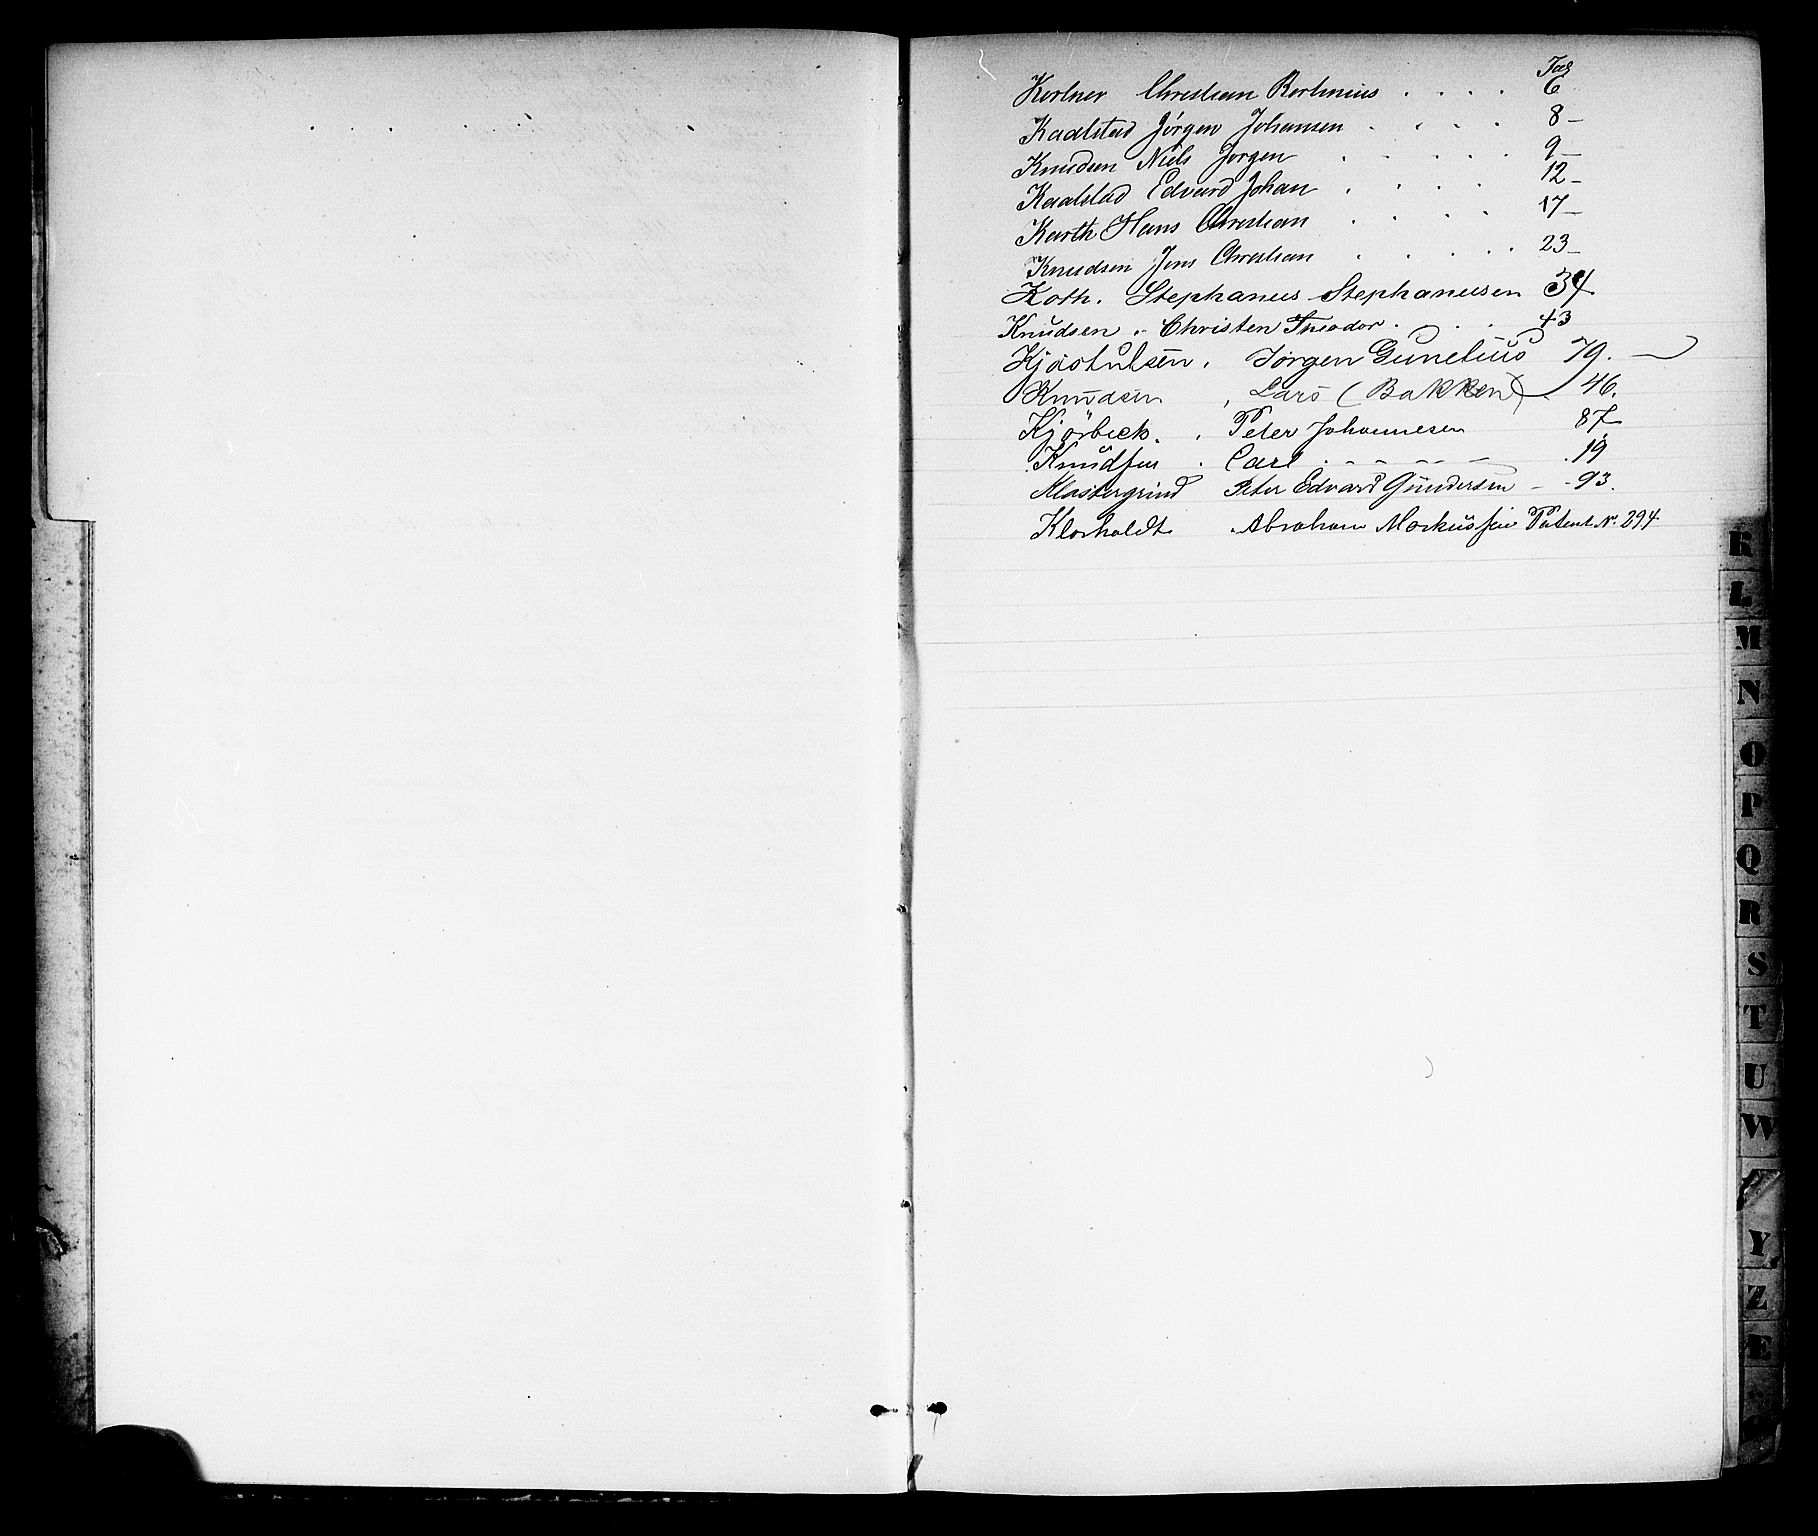 Pag
Kortner Christian Bortinius . . . . 6
Kaalstad Jørgen Johansen . . . . 8 -
Knudsen Niels Jørgen . . . . . 9 -
Kaalstad Edvard Johan . . . . 12 -
Karth Hans Christian . . . . 17 -
Knudsen Jens Christian . . . . 23 -
Koth. Stephanus Stephanussen 34.
Knudsen . Christen Theodor . . . 43
Kjøstulsen, Jörgen Gunelius 79. -
Knudsen , Lars (Bakken) . 46.
Kjörbeck. , Peter Johannesen 87
Knudsen . Carl . - - - - - 19
Klostergrind Peter Edvard Gundersen - - 93.
Klorholdt Abraham Markussen Patent N. 294
K
L
M
N
O
P
Q
R
S
T
U
W
Y
Z
Æ